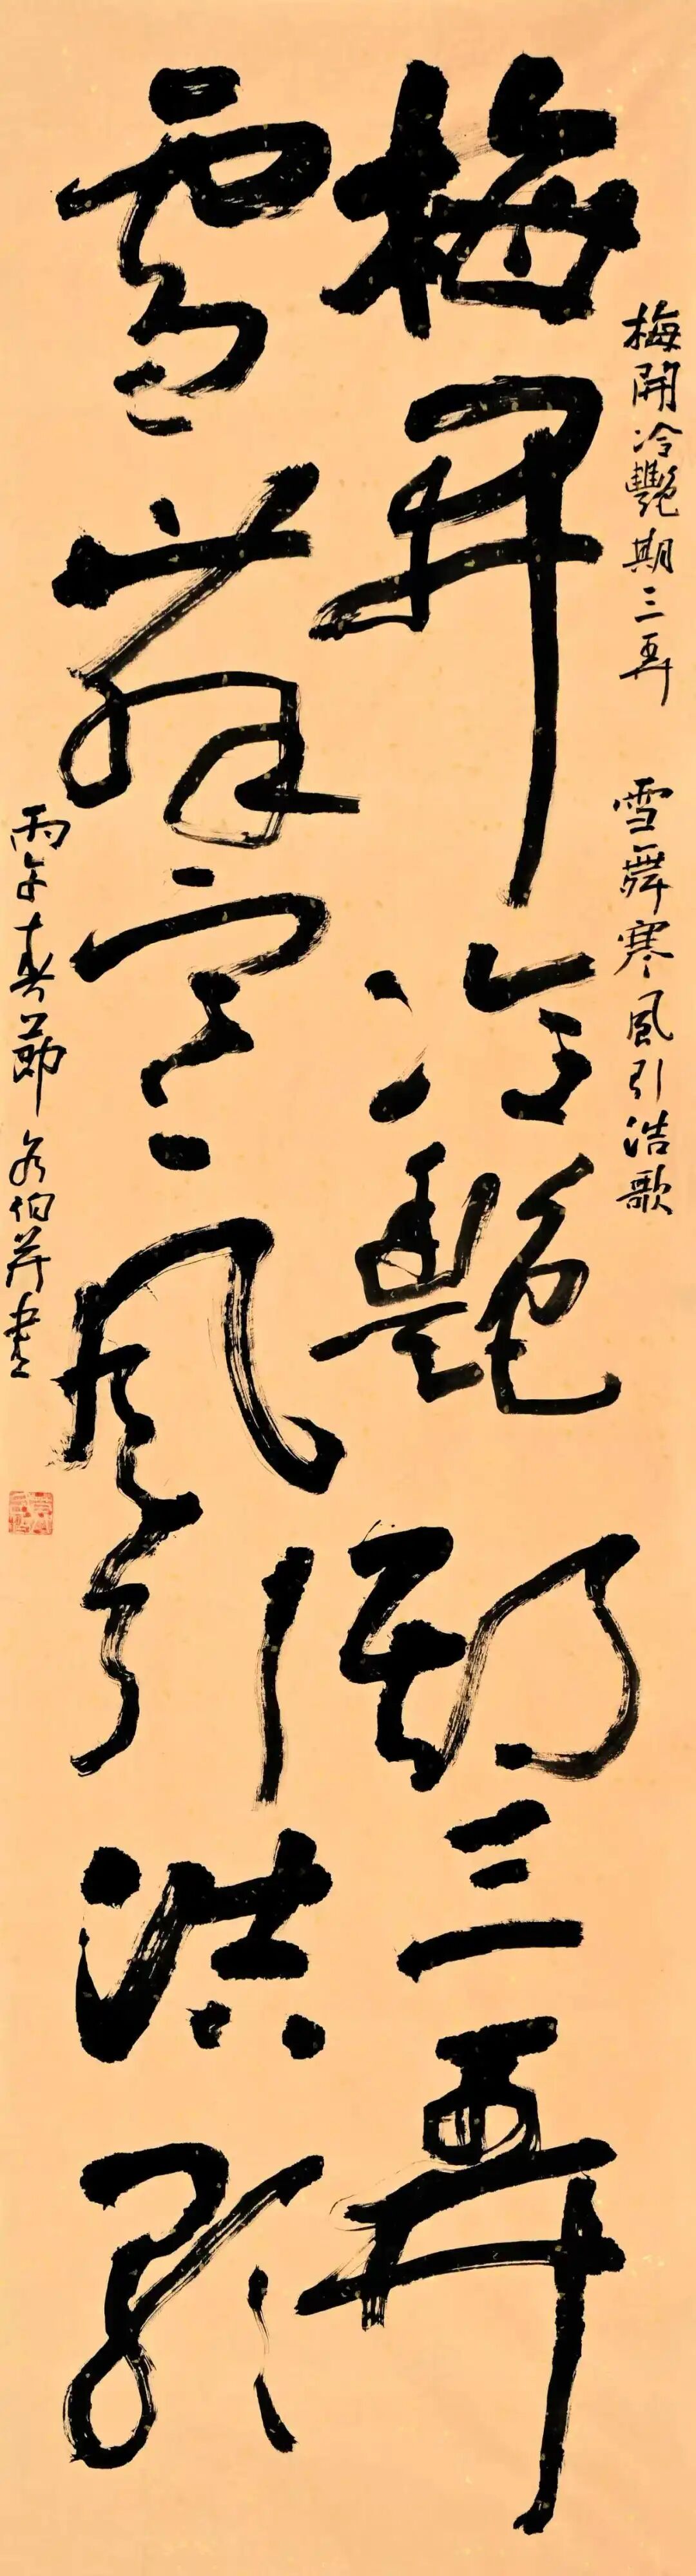 梅開冷艷期三弄 雪舞寒風引浩歌
梅開冷艷期三弄
雪舞寒風引浩歌
丙午春節 伯并書